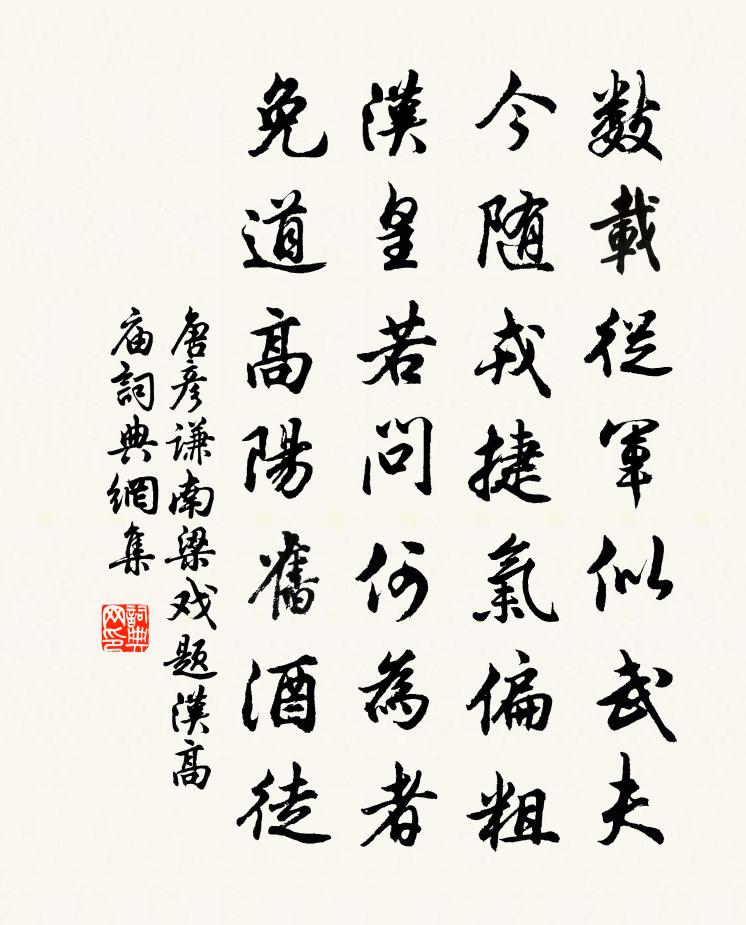 数載從軍似武夫
今随戎捷氣偏粗
漢皇若問何為者
免道高陽舊酒徒
唐彦谦南梁戏題漢高
庙詞典網集
詞典网印